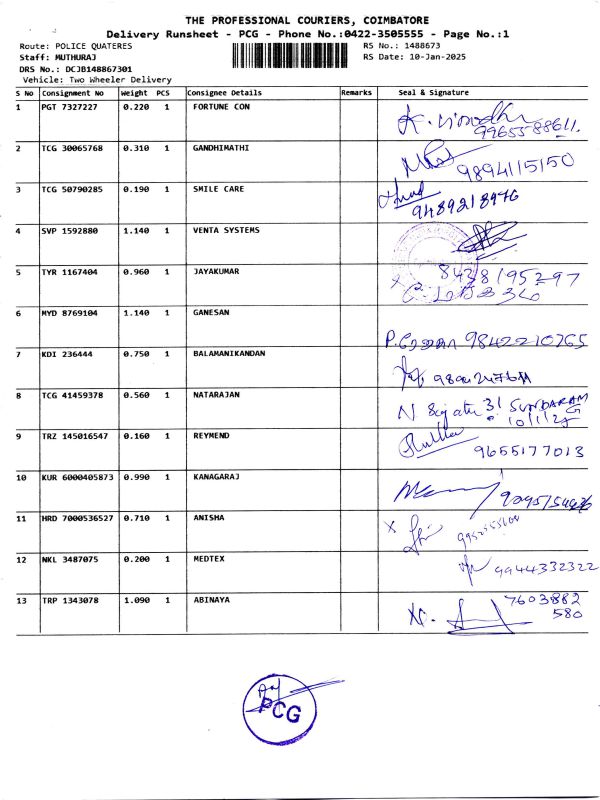 THE PROFESSIONAL COURIERS, COIMBATORE
Delivery Runsheet - PCG - Phone No.:0422-3505555 - Page No.:1
Route: POLICE QUATERES RS No.: 1488673
Staff: MUTHURAJ RS Date: 10-Jan-2025
DRS No.: DCJB148867301
Vehicle: Two Wheeler Delivery
S No Consignment No Weight PCS Consignee Details Remarks Seal & Signature
1 PGT 7327227 0.220 1 FORTUNE CON
9965588611.
2 TCG 30065768 0.310 1 GANDHIMATHI
9894115150
3 TCG 50790285 0.190 1 SMILE CARE
9489218976
4 SVP 1592880 1.140 1 VENTA SYSTEMS
5 TYR 1167404 0.960 1 JAYAKUMAR
8438195297
6 MYD 8769104 1.140 1 GANESAN
9842210765
7 KDI 236444 0.750 1 BALAMANIKANDAN
8 TCG 41459378 0.560 1 NATARAJAN
SUNDARAM
10/1/25
9 TRZ 145016547 0.160 1 REYMEND
9655177013
10 KUR 6000405873 0.990 1 KANAGARAJ
11 HRD 7000536527 0.710 1 ANISHA
12 NKL 3487075 0.200 1 MEDTEX
9944332322
13 TRP 1343078 1.090 1 ABINAYA
7603882
580
PCG